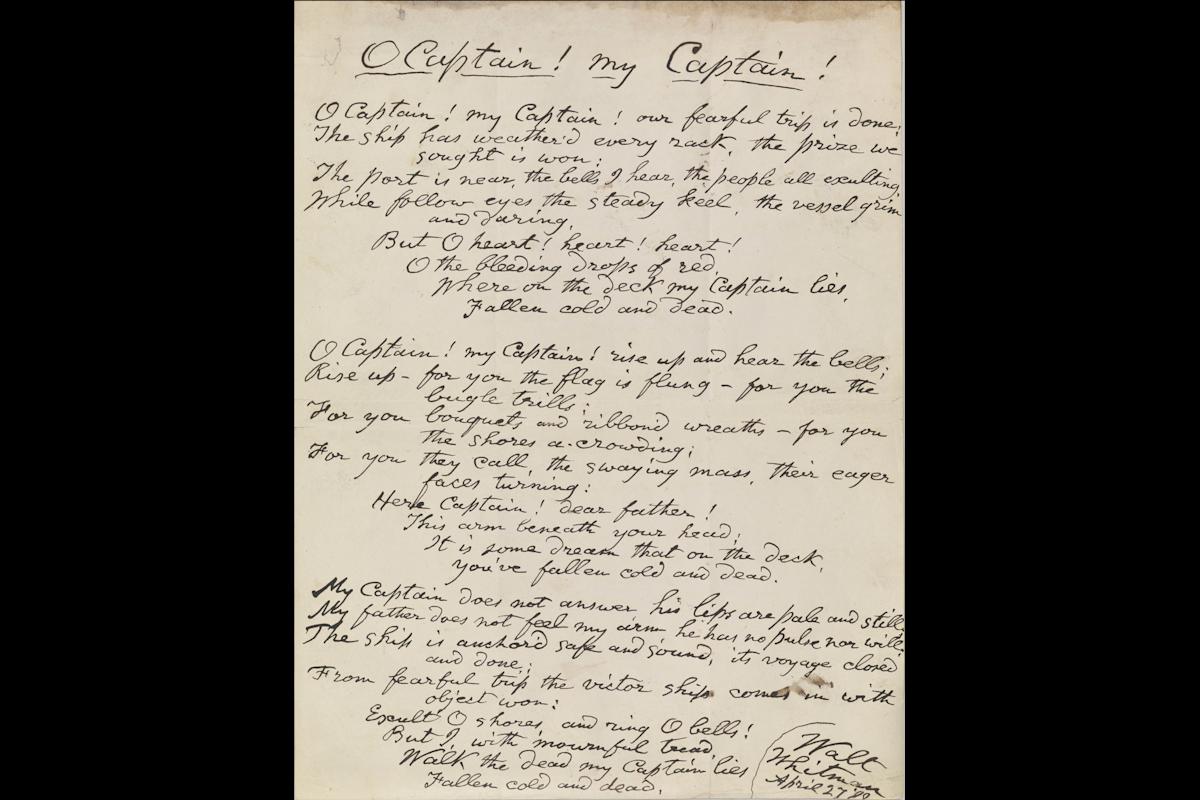 O Captain! my Captain!
O Captain! my Captain! our fearful trip is done;
The ship has weather'd every rack, the prize we
sought is won;
The port is near, the bells I hear, the people all exulting,
While follow eyes the steady keel, the vessel grim
and daring,
But O heart! heart! heart!
O the bleeding drops of red,
Where on the deck my Captain lies,
Fallen cold and dead.
O Captain! my Captain! rise up and hear the bells;
Rise up – for you the flag is flung – for you the
bugle trills;
For you bouquets and ribbon'd wreaths – for you
the shores a-crowding;
For you they call, the swaying mass, their eager
faces turning:
Here Captain! dear father!
This arm beneath your head;
It is some dream that on the deck,
You've fallen cold and dead.
My Captain does not answer, his lips are pale and still;
My father does not feel my arm, he has no pulse nor will;
The ship is anchor'd safe and sound, its voyage closed
and done;
From fearful trip the victor ship comes in with
object won:
Exult O shores, and ring O bells!
But I, with mournful tread,
Walk the dead my Captain lies
Fallen cold and dead.
Walt
Whitman
April 27 '80